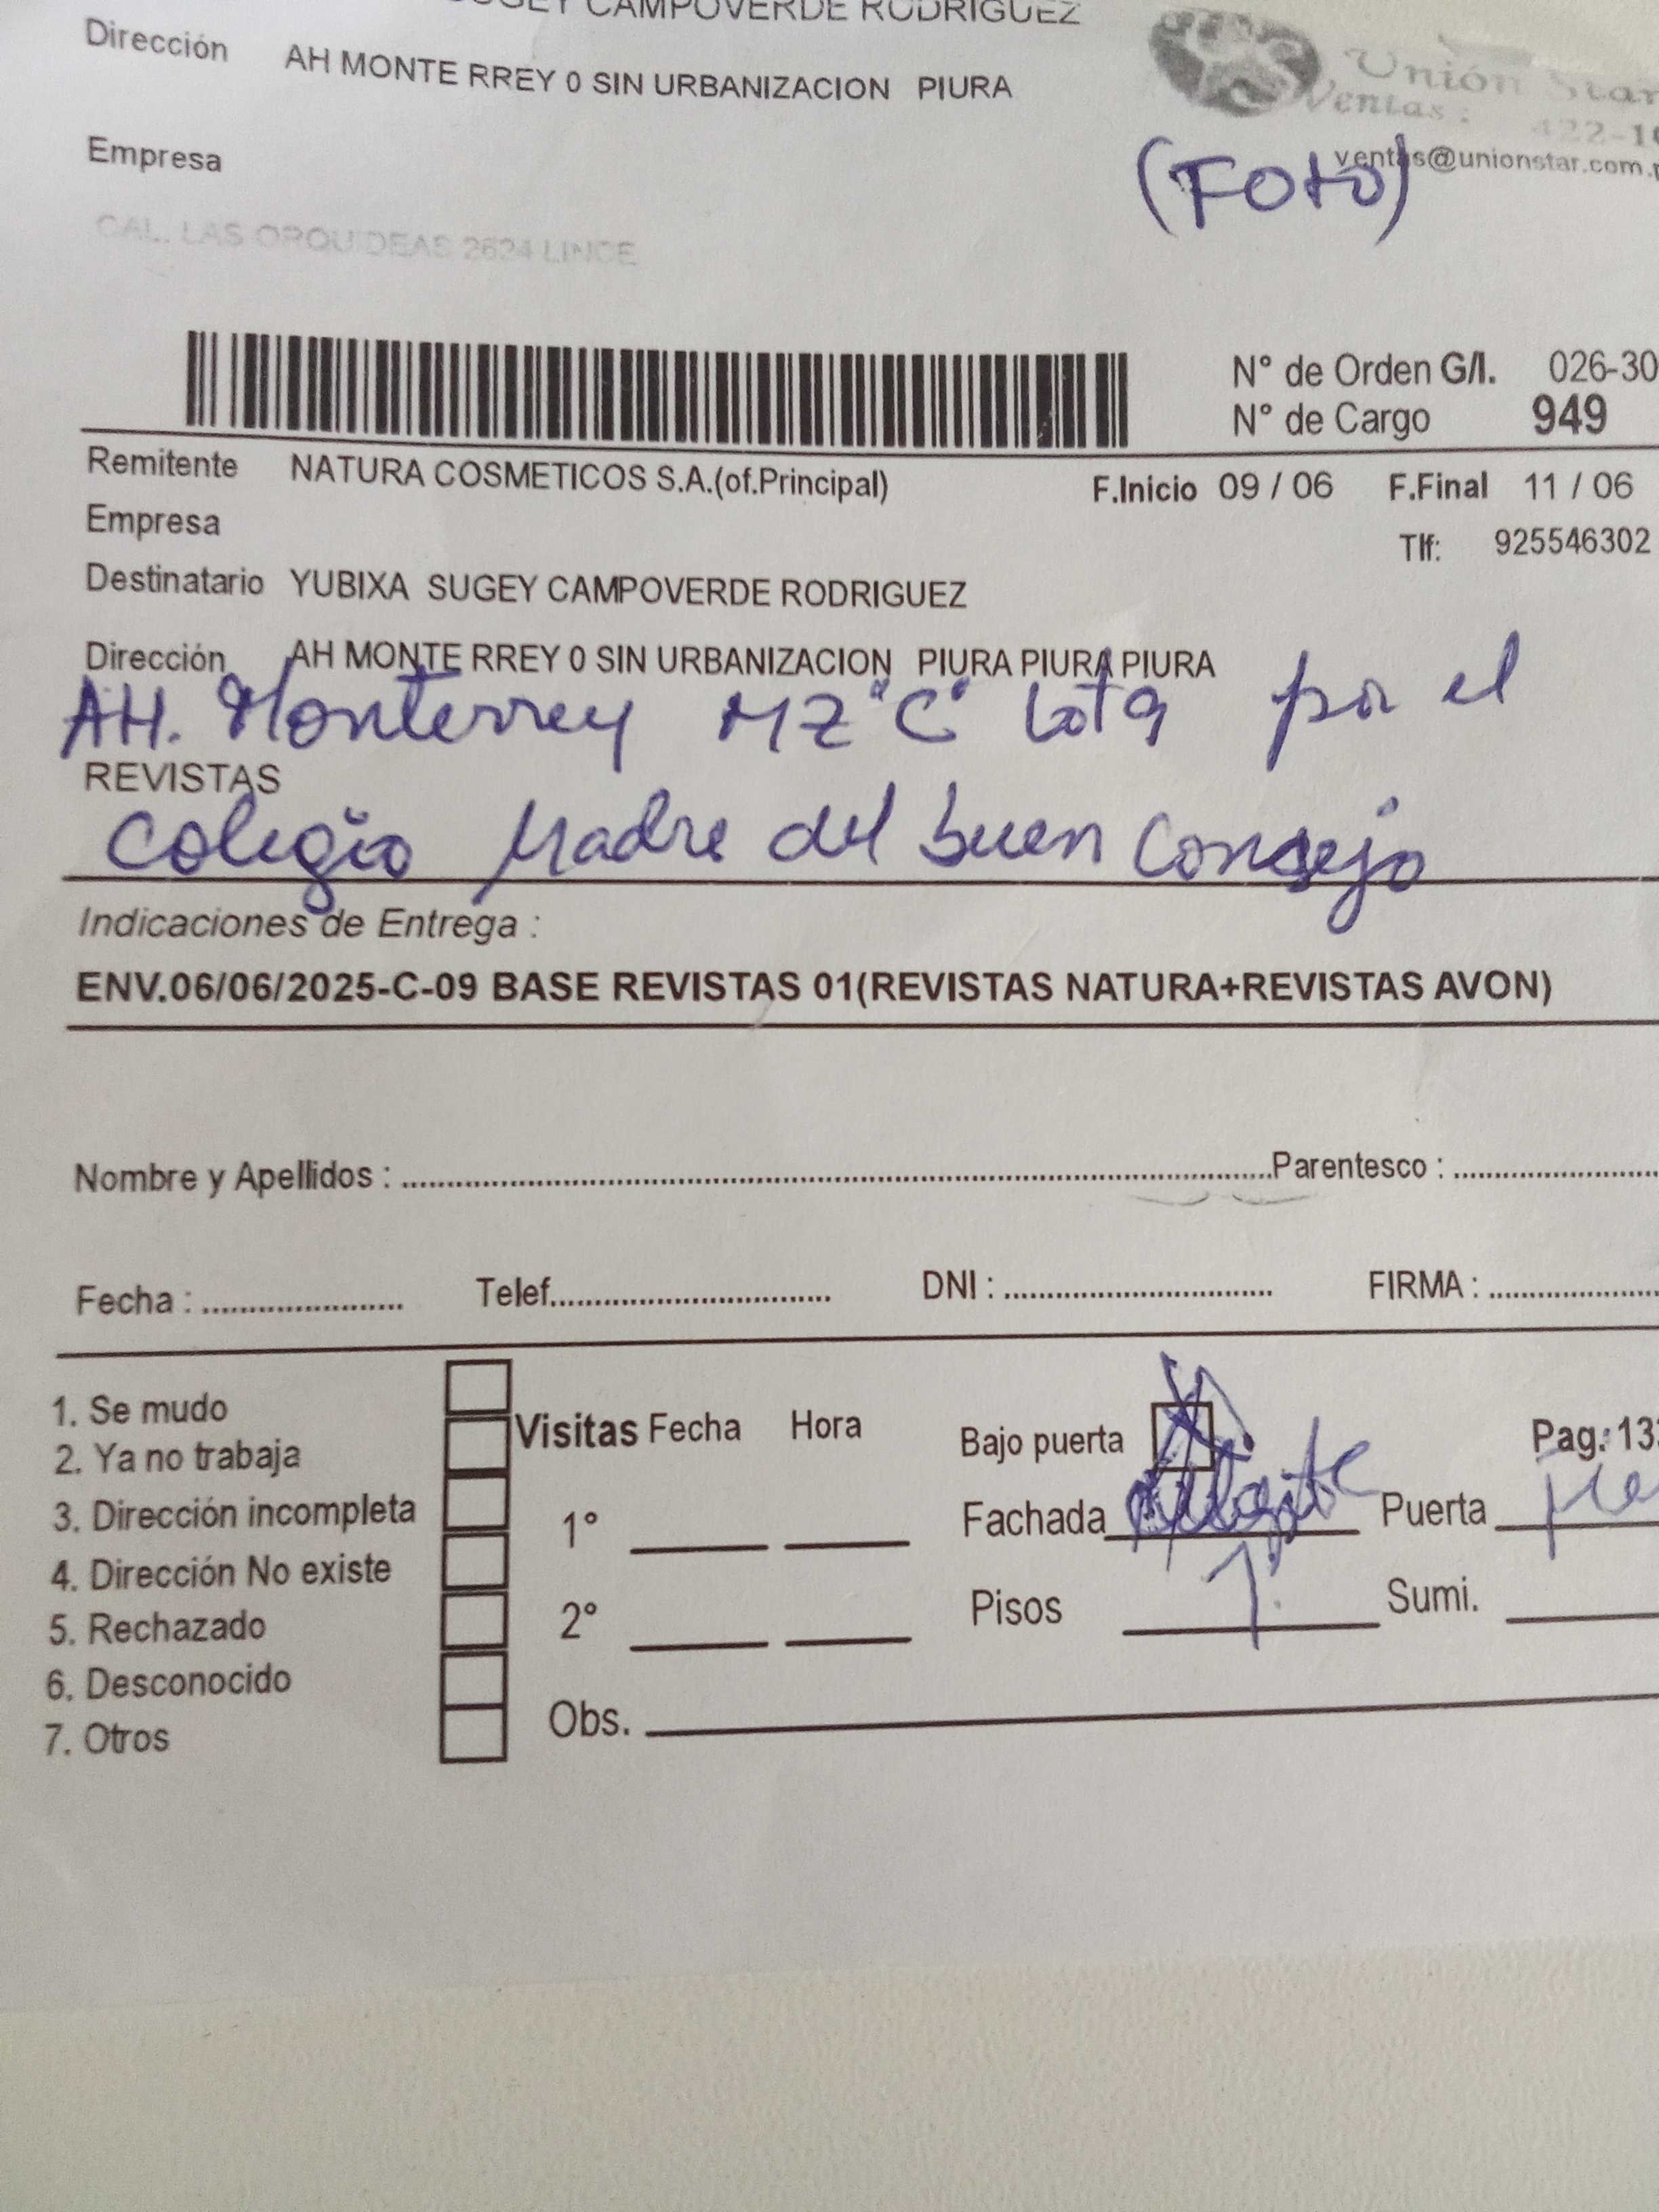 SUGEY CAMPOVERDE RODRIGUEZ
Dirección AH MONTE RREY 0 SIN URBANIZACION PIURA
Unión Star
Ventas : 422-1
Empresa
ventas@unionstar.com.
(Foto)
CAL. LAS ORQUIDEAS 2624 LINCE
N° de Orden G/I. 026-30
N° de Cargo 949
Remitente NATURA COSMETICOS S.A.(of.Principal) F.Inicio 09 / 06 F.Final 11 / 06
Empresa
Tlf: 925546302
Destinatario YUBIXA SUGEY CAMPOVERDE RODRIGUEZ
Dirección AH MONTE RREY 0 SIN URBANIZACION PIURA PIURA PIURA
AH. Monterrey MZ "C" Lot 9 por el
REVISTAS
Colegio Madre del buen Consejo
Indicaciones de Entrega :
ENV.06/06/2025-C-09 BASE REVISTAS 01(REVISTAS NATURA+REVISTAS AVON)
Nombre y Apellidos : Parentesco :
Fecha : Telef. DNI : FIRMA :
1. Se mudo
2. Ya no trabaja
3. Dirección incompleta
4. Dirección No existe
5. Rechazado
6. Desconocido
7. Otros
Visitas Fecha Hora
1°
2°
Obs.
Bajo puerta
Pag.:13
Fachada Puerta
Pisos 1. Sumi.